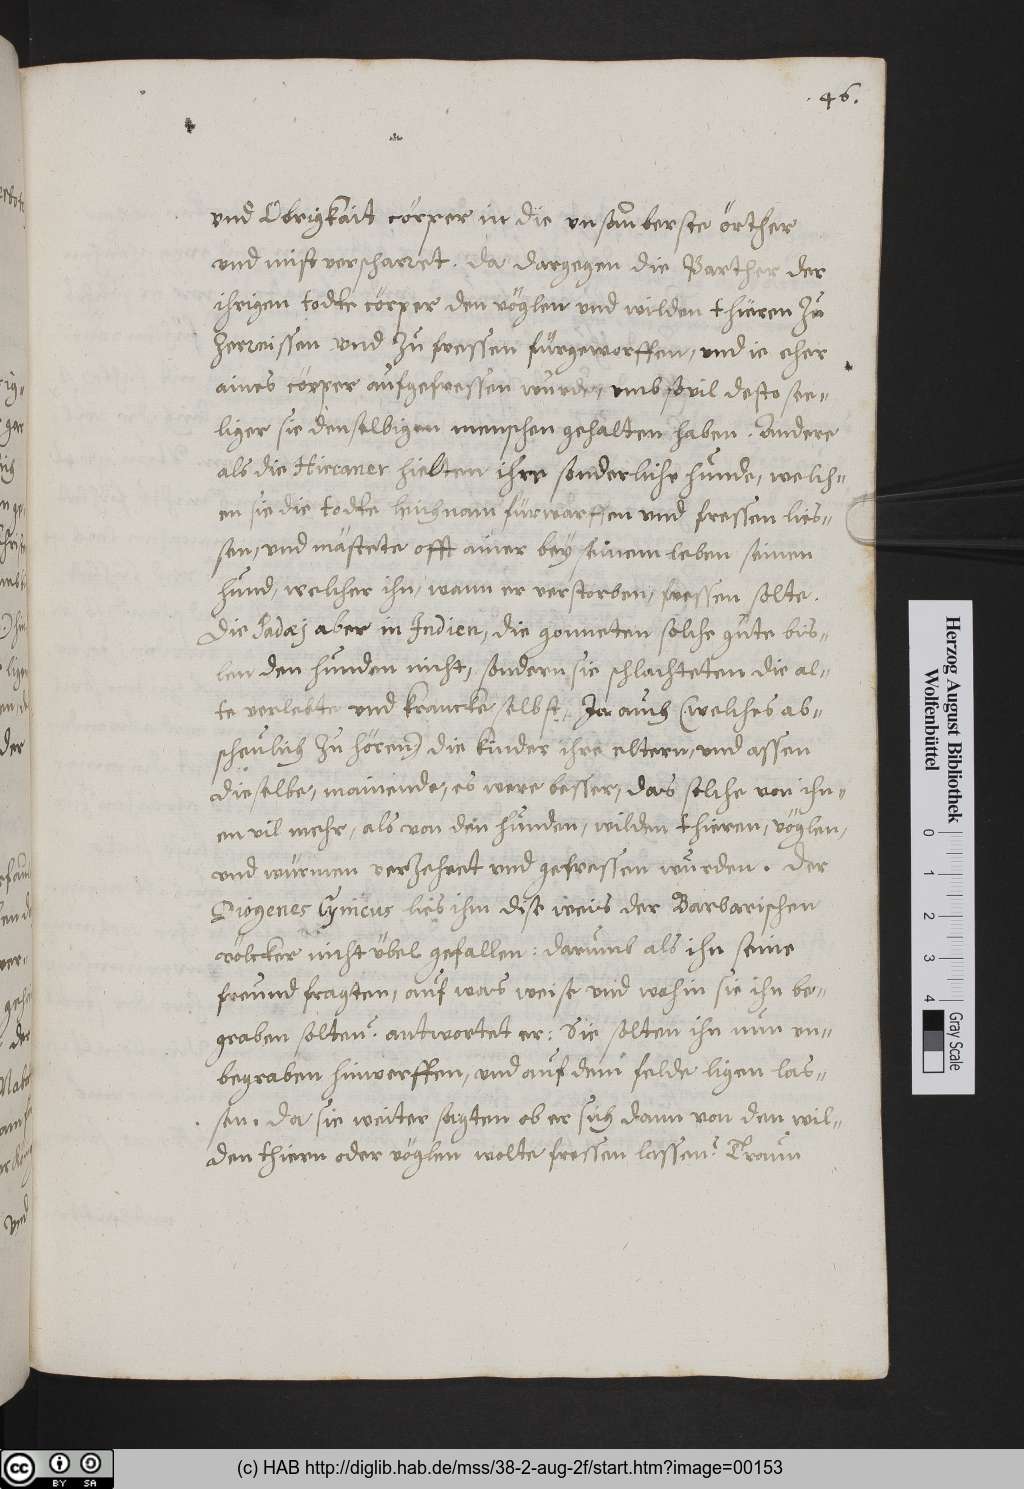 . 46.
vnd Obrigkait cörper in die vnsauberste örther
vnd mist verscharret. da dargegen die Parther der
ihrigen todte cörper den vöglen vnd wilden thieren zu
zerreissen vnd zu fressen fürgeworffen, vnd ie eher
aines cörper aufgefressen wurde, vmb sovil desto see-
liger sie denselbigen menschen gehalten haben. Andere
als die Hircaner hielten ihre sonderliche hunde, welch-
en sie die todte leichnam fürwarffen vnd fressen lies-
sen, vnd mästete offt ainer bey seinem leben seinen
hund, welcher ihn, wann er verstorben, fressen solte.
Die Padæj aber in Indien, die gonneten solche gute bis-
len den hunden nicht, sondern sie schlachteten die al-
te verlebte vnd krancke selbst, Ja auch (welches ab-
scheulich zu hören) die kinder ihre eltern, vnd assen
dieselbe, mainende, es were besser, das solche von ihn-
en vil mehr, als von den hunden, wilden thieren, vöglen,
vnd würmen verzehret vnd gefressen wurden. Der
Diogenes Cynicus lies ihm dise weis der Barbarischen
völcker nicht übel gefallen: darumb als ihn seine
freund fragten, auf was weise vnd wohin sie ihn be-
graben solten? antwortet er: Sie solten ihn nun vn-
begraben hinwerffen, vnd auf dem felde ligen las-
sen. da sie weiter sagten ob er sich dann von den wil-
den thiern oder vöglen wolte fressen lassen? Traun
Herzog August Bibliothek
Wolfenbüttel
0 1 2 3 4
Gray Scale
cc BY SA
(c) HAB http://diglib.hab.de/mss/38-2-aug-2f/start.htm?image=00153